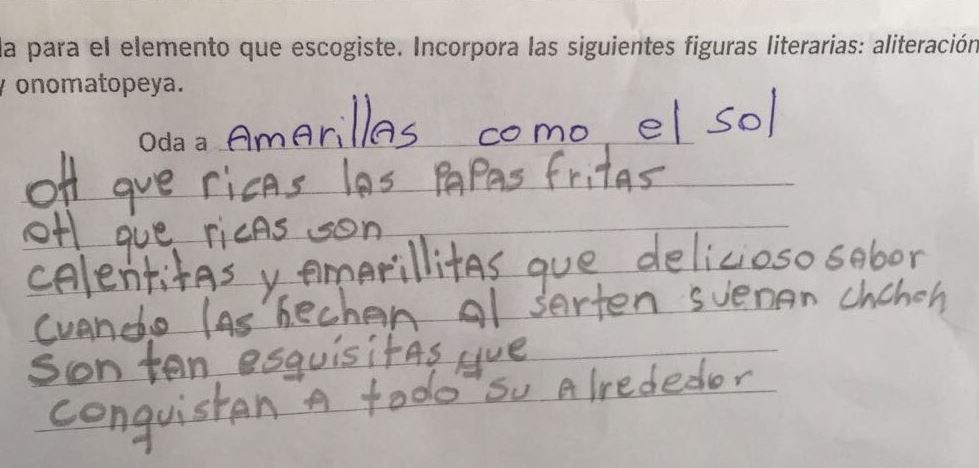 la para el elemento que escogiste. Incorpora las siguientes figuras literarias: aliteración
y onomatopeya.
Oda a Amarillas como el sol
OH que ricas las papas fritas
OH que ricas son
calentitas y amarillitas que delicioso sabor
cuando las hechan al sarten suenan chchch
son tan esquisitas que
conquistan a todo su alrededor